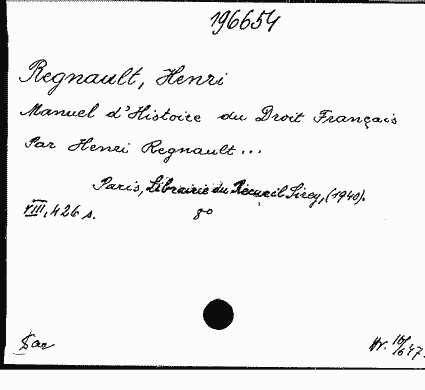 196654
Regnault, Henri
Manuel d'Histoire du Droit Français
Par Henri Regnault...
Paris, Librairie du Recueil Sirey, (1940).
VIII, 426 s. 8º
Dar
Nr. 16/647.